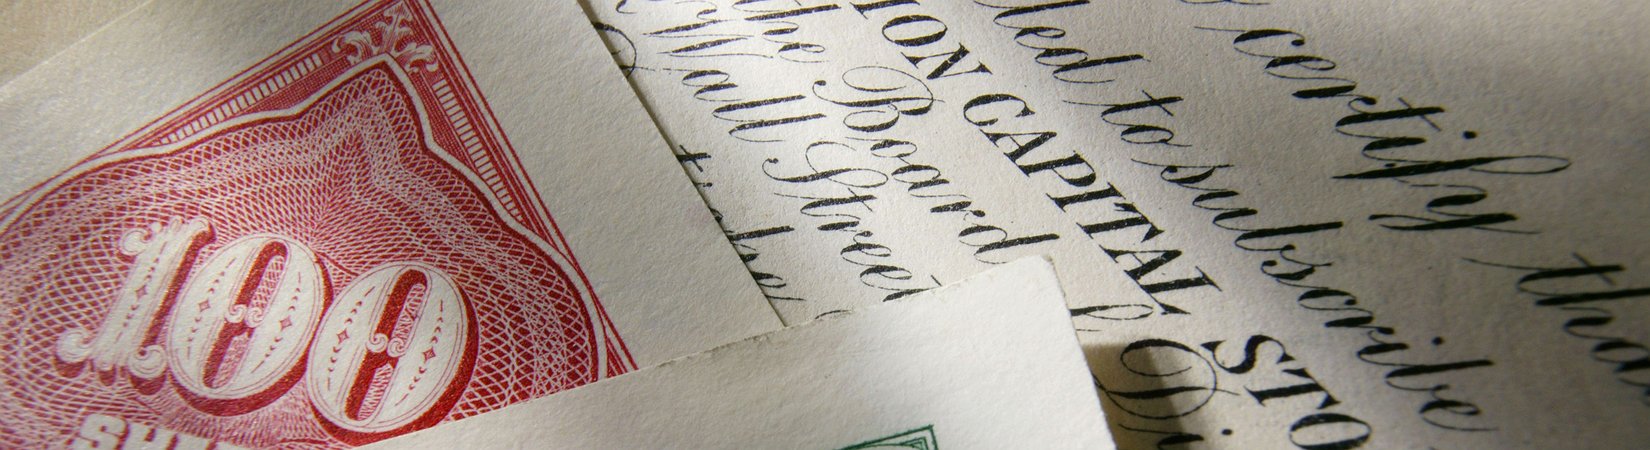 100
certify tha
led to subscribe
ION CAPITAL STO
the Board f Di
Wall Street